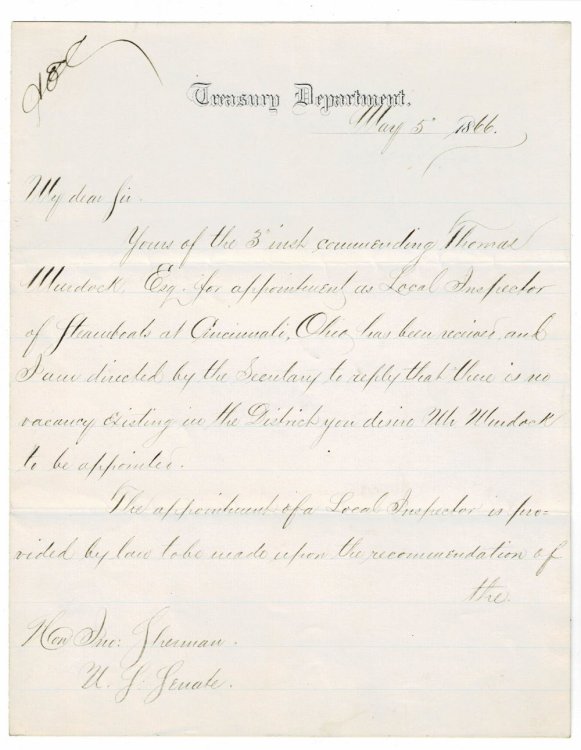 Treasury Department,
May 5" 1866.
My dear Sir.
Yours of the 3" inst. commending Thomas
Murdock, Esq. for appointment as Local Inspector
of Steamboats at Cincinnati, Ohio, has been received, and
I am directed by the Secretary to reply that there is no
vacancy existing in the District you desire Mr Murdock
to be appointed.
The appointment of a Local Inspector is pro=
vided by law to be made upon the recommendation of
the
Hon Jno: Sherman.
U. S. Senate.